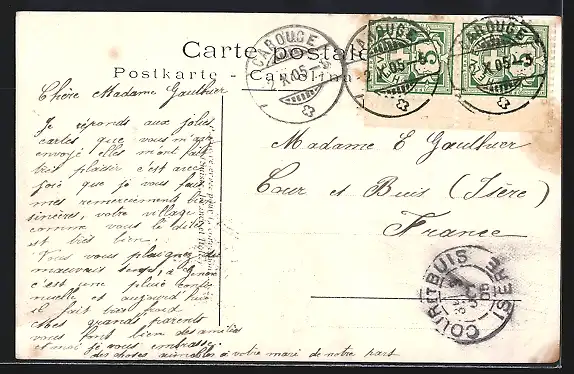 Carte postale
Postkarte - Cartolina
CAROUGE
2.X.05.-5
CAROUGE
2.X.05.
5
5
Chère Madame Gauthier
Je réponds aux jolies
cartes que vous m'avez
envoyé elles m'ont fait
très plaisir c'est avec
joie que je vous fais
mes remerciements bien
sincères, votre village
comme vous le dites
est très bien.
Vous vous plaignez du
mauvais temps, à Genève
c'est une pluie conti-
nuelle et aujourd'hui
il fait très froid
mes grands parents
vous font bien des amitiés
et moi je vous embrasse
des choses aimables à votre mari de notre part
Madame E Gauthier
Cour et Buis (Isère)
France
COUR ET BUIS
ISERE
OCT
05